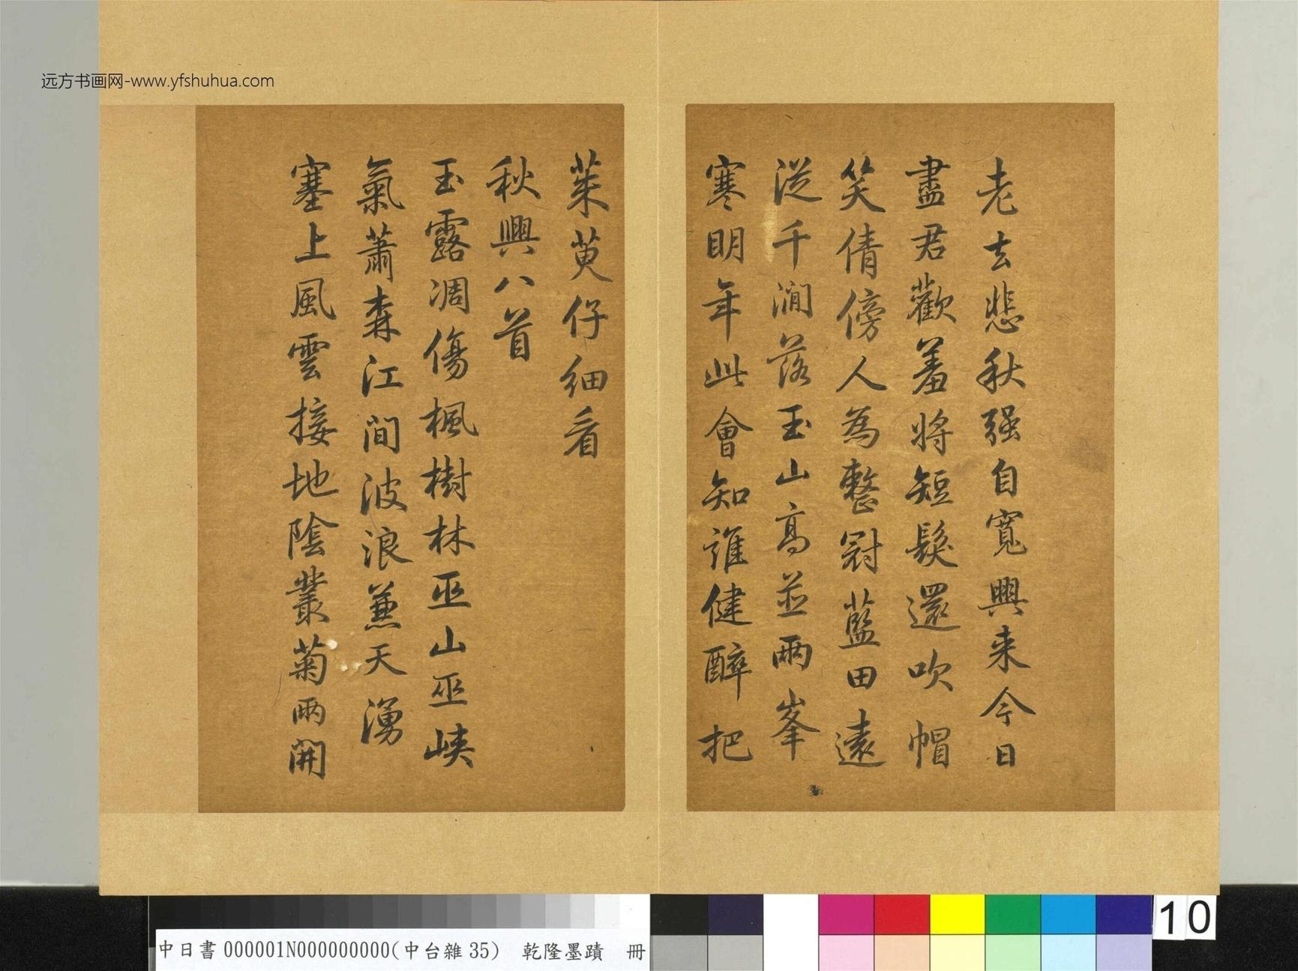 远方书画网-www.yfshuhua.com
老去悲秋强自寬興来今日
盡君歡羞將短髮還吹帽
笑倩傍人為整冠藍田遠
從千澗落玉山高並兩峯
寒明年此會知誰健醉把
茱萸仔细看
秋興八首
玉露凋傷楓樹林巫山巫峽
氣蕭森江間波浪兼天湧
塞上風雲接地陰叢菊兩開
中日書 000001N000000000(中台雜 35) 乾隆墨蹟 冊
10